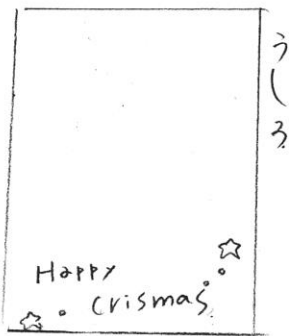 うしろ
Happy
Crismas